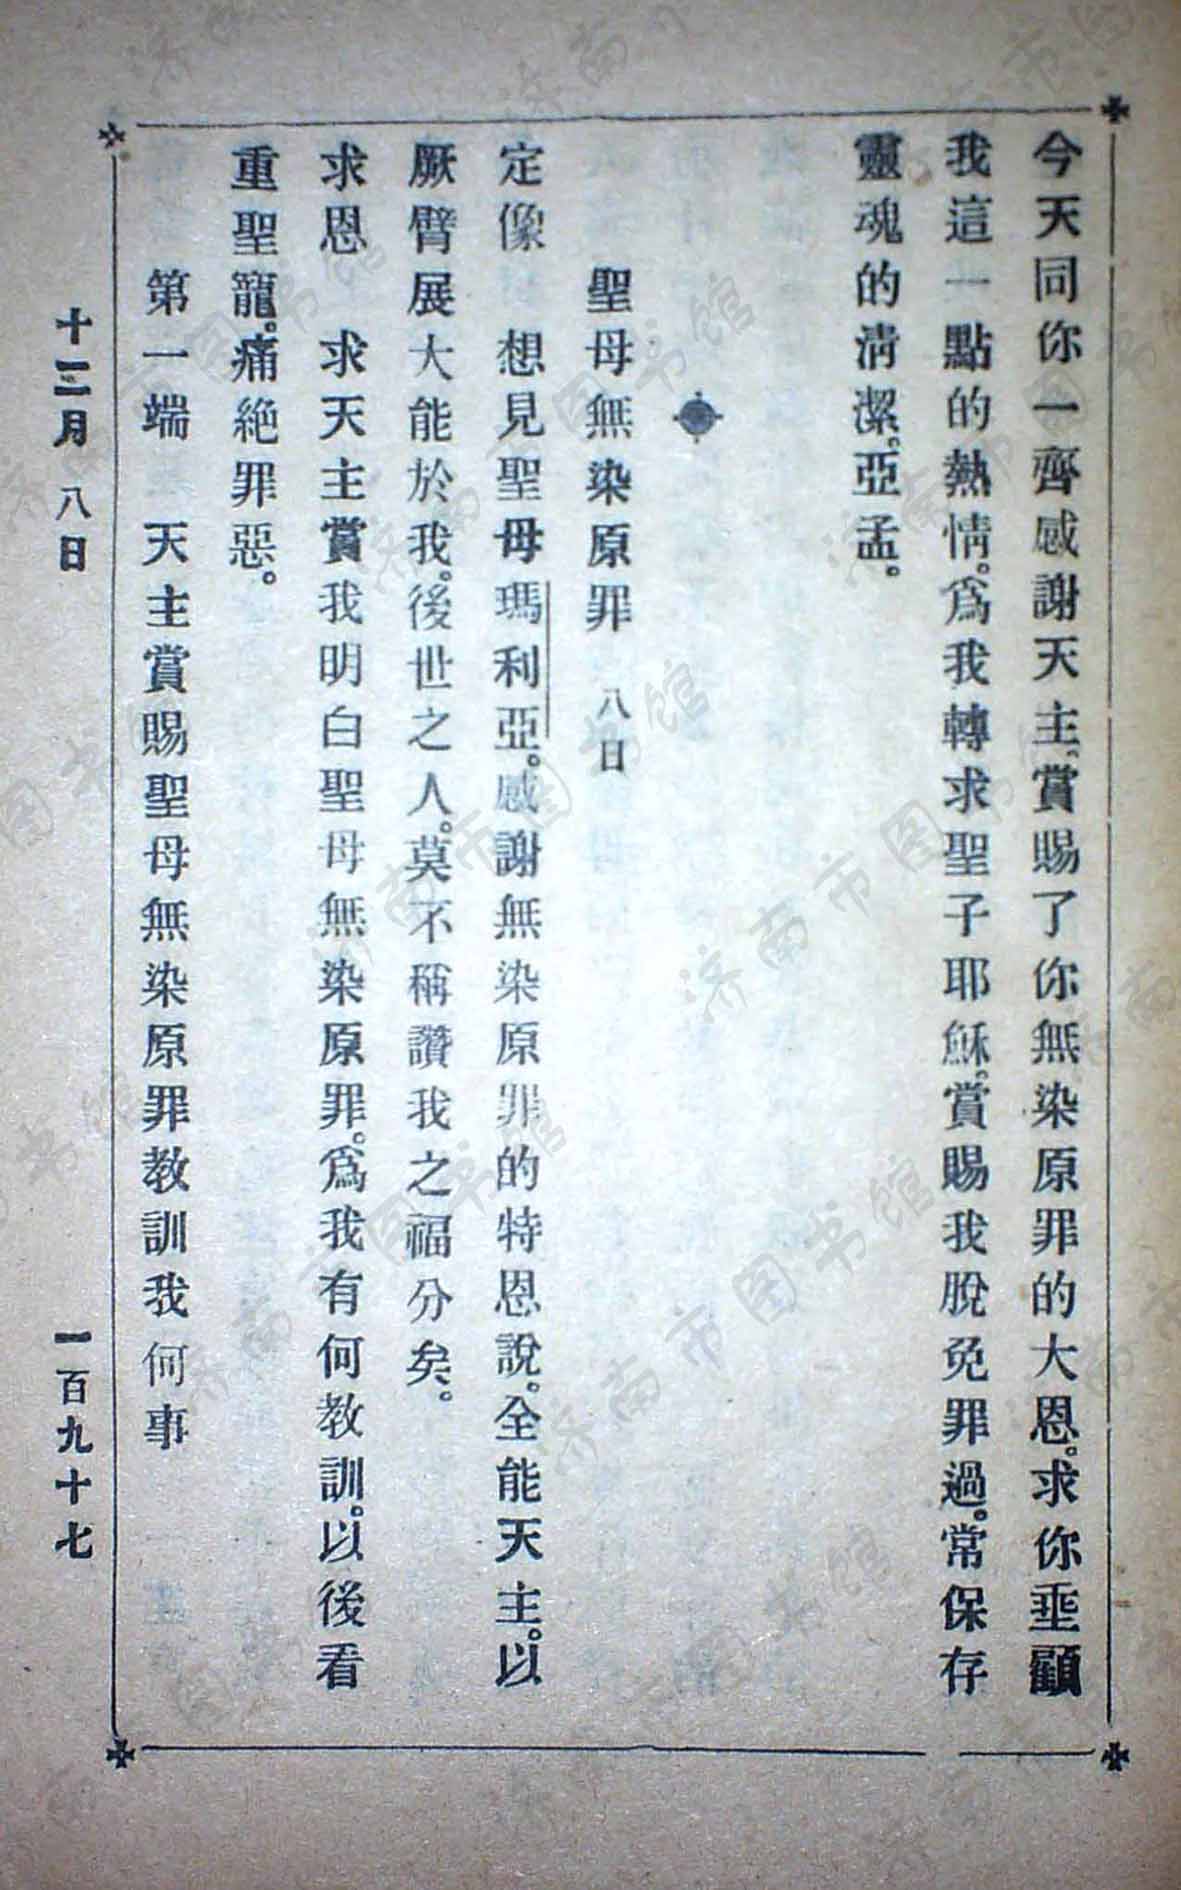 今天同你一齊感謝天主、賞賜了你無染原罪的大恩。求你垂顧
我這一點的熱情。爲我轉求聖子耶穌。賞賜我脫免罪過。常保存
靈魂的淸潔。亞孟。
聖母無染原罪 八日
定像 想見聖母瑪利亞。感謝無染原罪的特恩說。全能天主。以
厥臂展大能於我。後世之人。莫不稱讚我之福分矣。
求恩 求天主賞我明白聖母無染原罪。爲我有何教訓。以後看
重聖寵。痛絕罪惡。
第一端 天主賞賜聖母無染原罪教訓我何事
十二月 八日 一百九十七
济南市图书馆